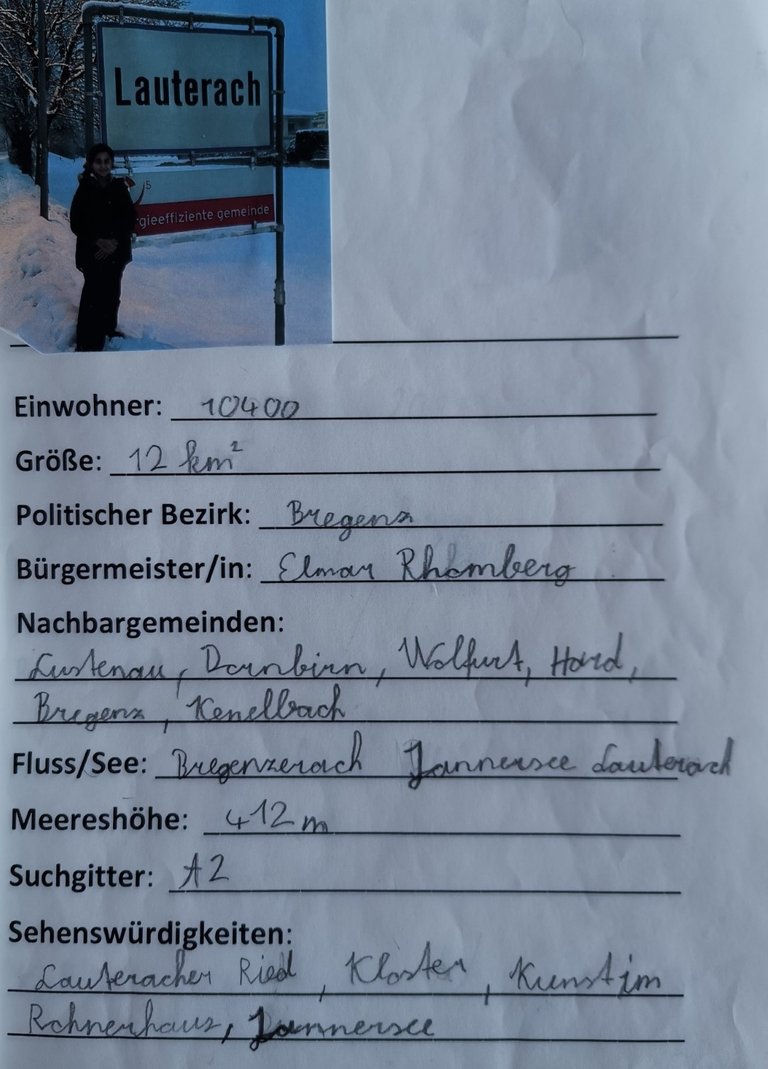 Lauterach
gieeffiziente gemeinde
Einwohner: 10400
Größe: 12 km²
Politischer Bezirk: Bregenz
Bürgermeister/in: Elmar Rhomberg
Nachbargemeinden:
Lustenau, Dornbirn, Wolfurt, Hard,
Bregenz, Kenelbach
Fluss/See: Bregenzerach Jannersee Lauterach
Meereshöhe: 412 m
Suchgitter: A2
Sehenswürdigkeiten:
Lauteracher Ried, Kloster, Kunst im
Rohnerhaus, Jannersee